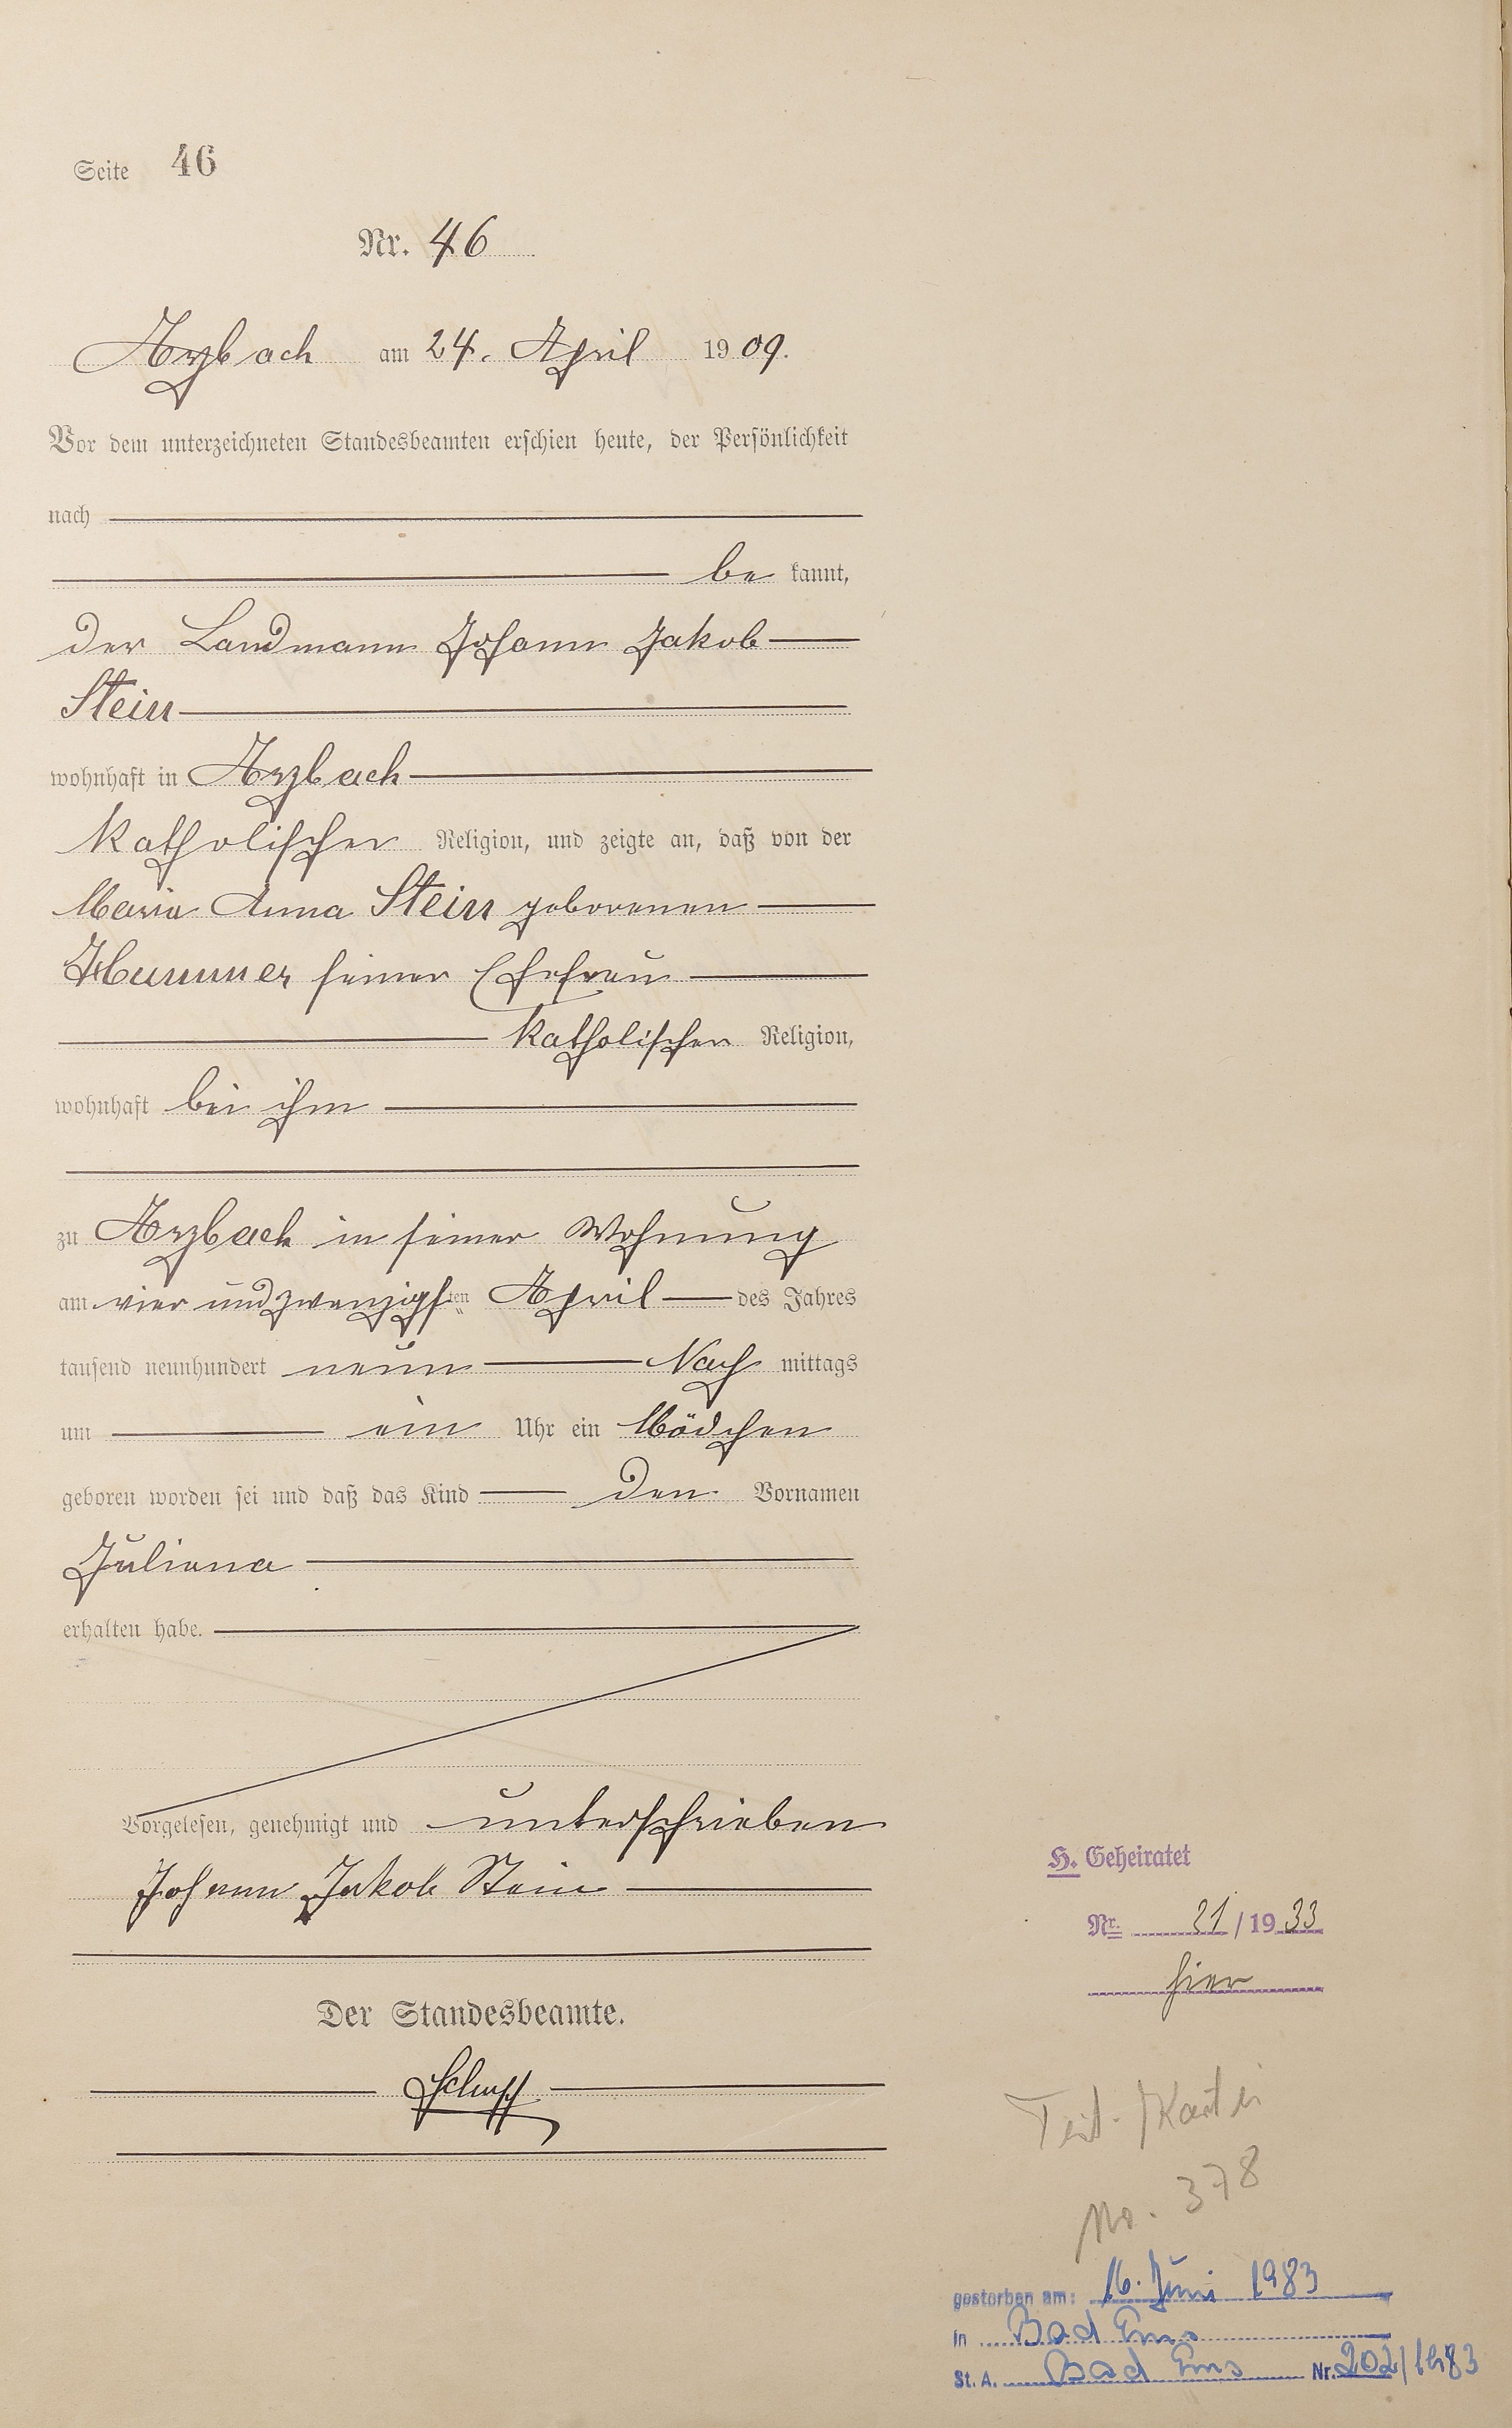 Seite 46
Nr. 46
Arzbach am 24. April 1909.
Vor dem unterzeichneten Standesbeamten erschien heute, der Persönlichkeit
nach
be kannt,
der Landmann Johann Jakob
Stein
wohnhaft in Arzbach
katholischer Religion, und zeigte an, daß von der
Maria Anna Stein geborenen
Hummer seiner Ehefrau
katholischer Religion,
wohnhaft bei ihm
zu Arzbach in seiner Wohnung
am vier und zwanzigsten April des Jahres
tausend neunhundert neun Nach mittags
um ein Uhr ein Mädchen
geboren worden sei und daß das Kind den Vornamen
Juliana
erhalten habe.
Vorgelesen, genehmigt und unterschrieben
Johann Jakob Stein
Der Standesbeamte.
H. Geheiratet
Nr. 21/1933
hier
No. 378
gestorben am: 16. Juni 1983
in Bad Ems
St. A. Bad Ems Nr. 202/1983